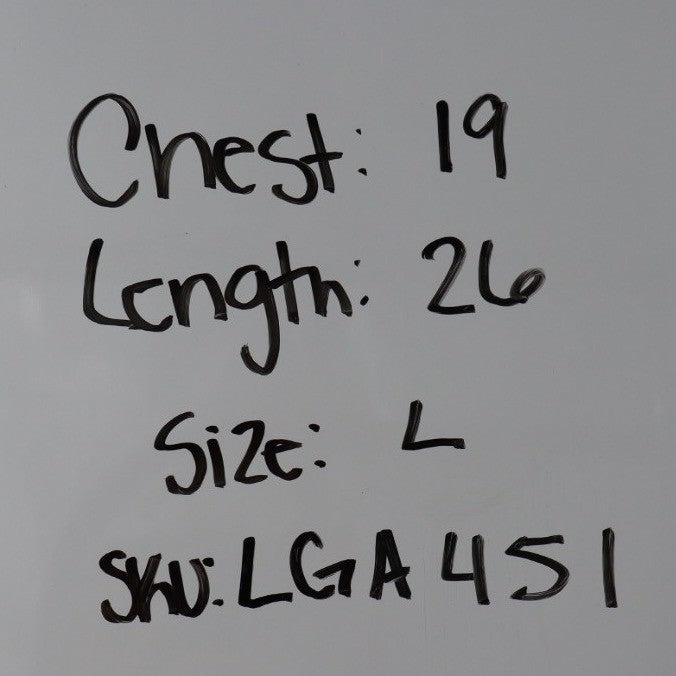 Chest: 19
Length: 26
Size: L
SKU: LGA451